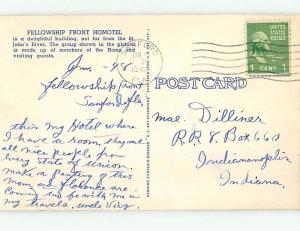 FELLOWSHIP FRONT HOMOTEL
is a delightful building, not far from the St.
John's River. The group shown in the picture
is made up of members of the Home and
visiting guests.
Jan - 48
Fellowship Front
Sanford, Fla
this my Hotel where
I have a room, they are
all nice people from
every state of Union
make a
mom and Florence are
Coming to be with me in
my travels, uncle
POST CARD
1 CENT 1
Mae. Dilliner
R.R. 8. Box 660
Indiananoplis
Indiana.